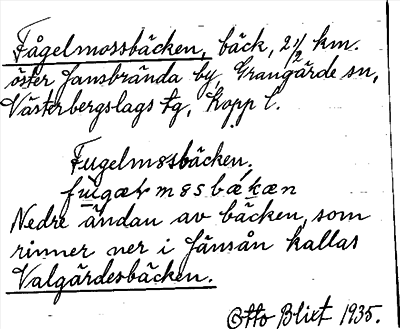 Fågelmossbäcken, bäck, 2 1/2 km.
öster Jansbrända by, Grangärde sn,
Västerbergslags tg, Kopp l.
Fugelmosbäcken.
Nedre ändan av bäcken, som
rinner ner i Jänsån kallas
Valgärdesbäcken.
Otto Blixt 1935.